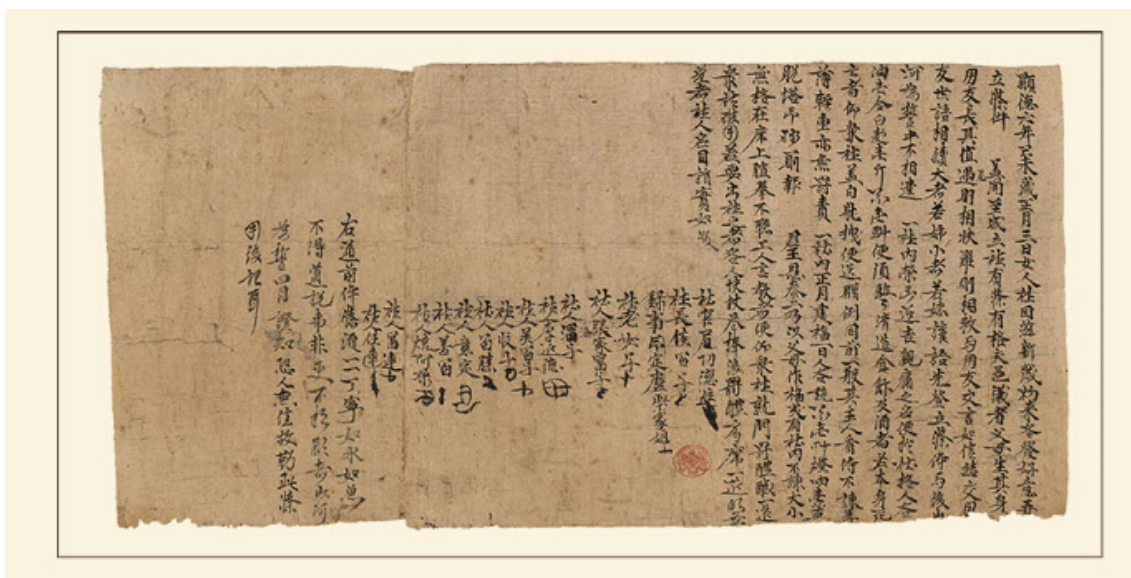 顯德六年己未歲正月三日女人社因茲新歲初來各發好意再
立條件 蓋聞至誠立社有條有格夫邑儀者父母生其身
朋友長其值遇危則相扶難則相救与朋友交言如信結交朋
友世語相續大者若姊小者若妹讓語先登立條件与後山
河為誓中不相違 一社內榮凶逐吉親痛之名便於社格人各
油壹合白麵壹斤粟壹斗便須驅驅濟造食飯及酒者若本身死
亡者仰眾社蓋白躭拽便送贈例同前一般其主人看侍不諫厚
薄輕重亦無罰責 一社內正月建福一日人各稅粟壹斗燈油壹盞
脫塔印砂一則報 君王恩泰二乃以父母作福或有社內不諫大小
無格在席上諠拳不聽上人言教者便仰眾社就門罰醴膩一筵
眾社破用若要出社之者各人決杖叁棒後罰醴局席一筵的無
免者社人名目詣實如後
社官尼功德進
社長侯富子
錄事印定磨柴家娘
社老女子
社人張家富子
社人渦子
社人李延德
社人吳富子
社人段子
社人富勝
社人意定
社人善富
社人燒阿朵
社人富連
社人住連
右通前件條流一一丁寧如水如魚
不得道說事非更不於願者山河
為誓日月證知恐人無信故勒此條
用後記耳